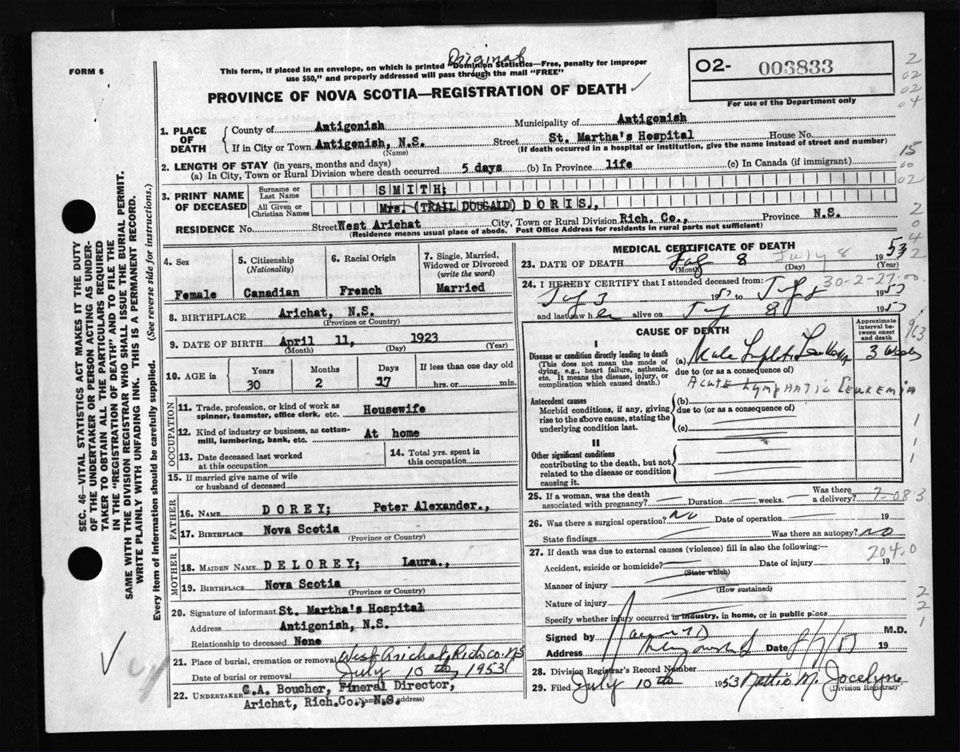 Original
FORM 6
This form, if placed in an envelope, on which is printed "Dominion Statistics—Free, penalty for improper
use $50," and properly addressed will pass through the mail "FREE"
O2- 003833
For use of the Department only
2
02
04
PROVINCE OF NOVA SCOTIA—REGISTRATION OF DEATH ✓
1. PLACE OF DEATH
County of Antigonish Municipality of Antigonish
If in City or Town Antigonish, N.S. Street St. Martha's Hospital House No.
(Name) (If death occurred in a hospital or institution, give the name instead of street and number)
15
00
02
2. LENGTH OF STAY (in years, months and days)
(a) In City, Town or Rural Division where death occurred 5 days (b) In Province life (c) In Canada (if immigrant)
3. PRINT NAME OF DECEASED
Surname or Last Name SMITH;
All Given or Christian Names Mrs. (TRAIL DOUGALD) DORIS.,
RESIDENCE No. Street West Arichat City, Town or Rural Division Rich. Co., Province N.S.
(Residence means usual place of abode. Post Office Address for residents in rural parts not sufficient)
4. Sex
Female
5. Citizenship (Nationality)
Canadian
6. Racial Origin
French
7. Single, Married, Widowed or Divorced (write the word)
Married
8. BIRTHPLACE Arichat, N.S.
(Province or Country)
9. DATE OF BIRTH April 11, 1923
(Month) (Day) (Year)
10. AGE in Years Months Days If less than one day
30 2 17 hrs. or min.
OCCUPATION
11. Trade, profession, or kind of work as spinner, teamster, office clerk, etc. Housewife
12. Kind of industry or business, as cotton-mill, lumbering, bank, etc. At home
13. Date deceased last worked at this occupation
14. Total yrs. spent in this occupation
15. If married give name of wife or husband of deceased
FATHER
16. NAME DOREY; Peter Alexander.,
17. BIRTHPLACE Nova Scotia
(Province or Country)
MOTHER
18. MAIDEN NAME DELOREY; Laura.,
19. BIRTHPLACE Nova Scotia
(Province or Country)
20. Signature of informant St. Martha's Hospital
Address Antigonish, N.S.
Relationship to deceased None
21. Place of burial, cremation or removal West Arichat, Rich Co. N.S
Date of burial or removal July 10th, 1953
22. UNDERTAKER C.A. Boucher, Funeral Director,
Arichat, Rich.Co., N.S.
(Name and address)
MEDICAL CERTIFICATE OF DEATH
23. DATE OF DEATH July 8 July 8 1953
(Month) (Day) (Year)
30-2-27
24. I HEREBY CERTIFY that I attended deceased from:
July 3 1953 to July 8 1953
and last saw h er alive on July 8 1953
CAUSE OF DEATH
Approximate interval between onset and death
I
Disease or condition directly leading to death
(This does not mean the mode of dying, e.g., heart failure, asthenia, etc. It means the disease, injury, or complication which caused death.)
(a) Acute Lymphatic Leukemia 3 weeks
due to (or as a consequence of)
Acute Lymphatic Leukemia
Antecedent causes
Morbid conditions, if any, giving rise to the above cause, stating the underlying condition last.
(b)
due to (or as a consequence of)
(c)
II
Other significant conditions
contributing to the death, but not related to the disease or condition causing it.
25. If a woman, was the death associated with pregnancy? Duration weeks. Was there a delivery?
7-083
26. Was there a surgical operation? No Date of operation 19
State findings Was there an autopsy? no
27. If death was due to external causes (violence) fill in also the following:—
204.0
Accident, suicide or homicide? Date of injury 19
(State which)
Manner of injury
(How sustained)
Nature of injury
Specify whether injury occurred in industry, in home, or in public place
Signed by M.D.
Address Date 19
28. Division Registrar's Record Number
29. Filed July 10th 1953 Nettie M. Jocelyne
(Division Registrar)
SEC. 46—VITAL STATISTICS ACT MAKES IT THE DUTY
OF THE UNDERTAKER OR PERSON ACTING AS UNDER-
TAKER TO OBTAIN ALL THE PARTICULARS REQUIRED
IN THE "REGISTRATION OF DEATH" AND TO FILE THE
SAME WITH THE DIVISION REGISTRAR WHO SHALL ISSUE THE BURIAL PERMIT.
WRITE PLAINLY WITH UNFADING INK. THIS IS A PERMANENT RECORD.
Every item of information should be carefully supplied. (See reverse side for instructions.)